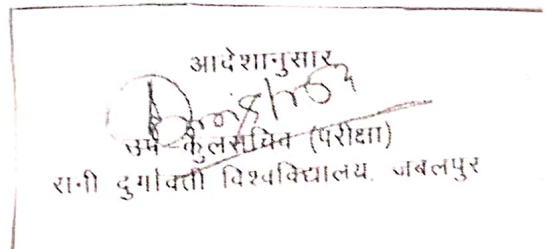 आदेशानुसार
उप-कुलसचिव (परीक्षा)
रानी दुर्गावती विश्वविद्यालय, जबलपुर